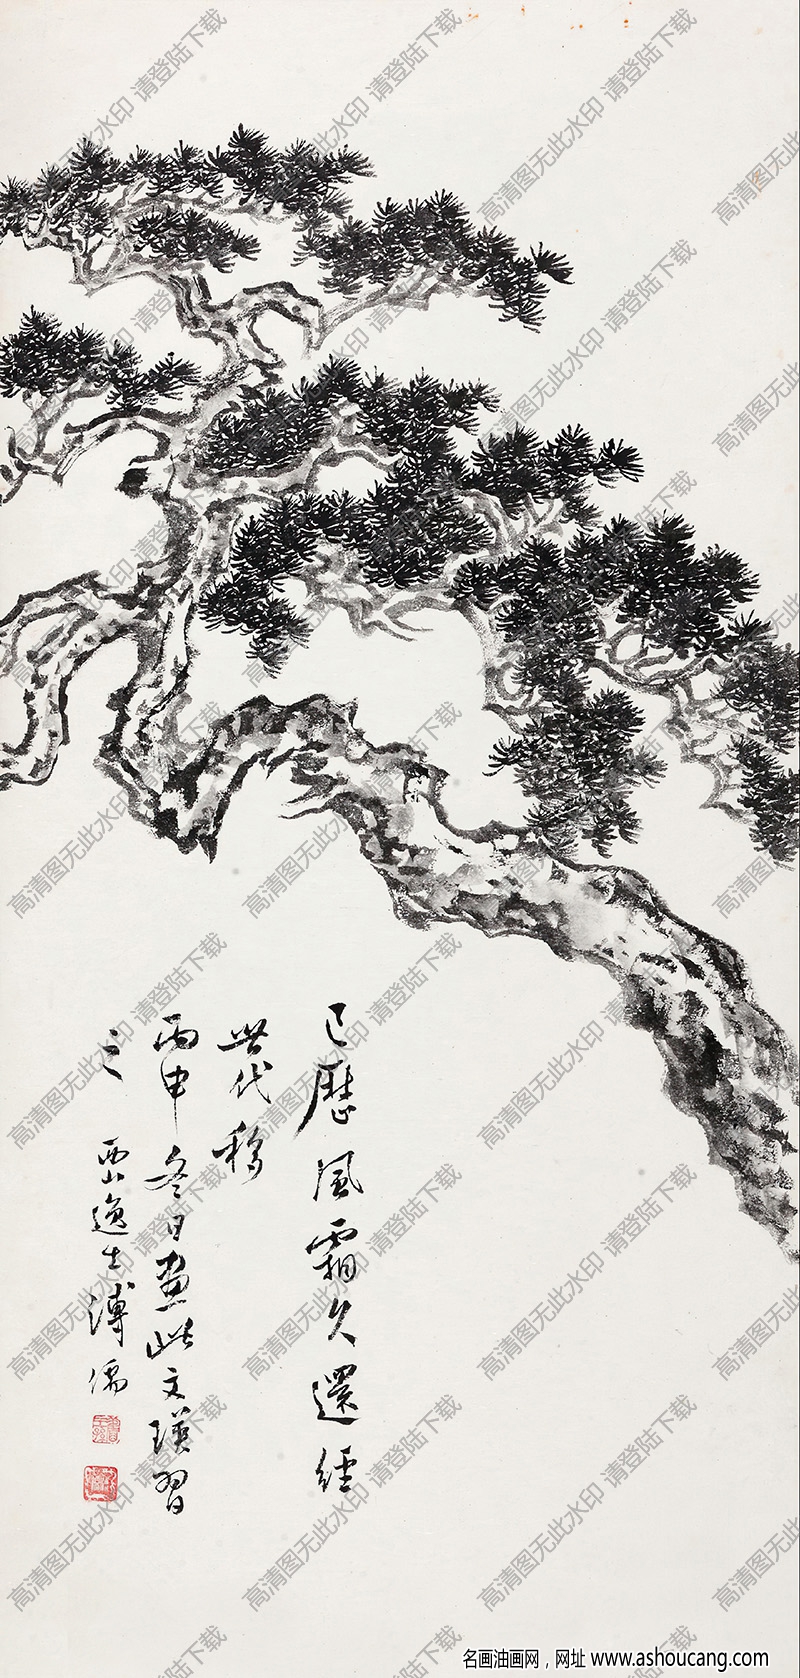 已歷風霜久還經
世代移
丙申冬日畫此文瑛習
之 西山逸士溥儒
高清图无此水印 请登陆下载
名画油画网，网址 www.ashoucang.com